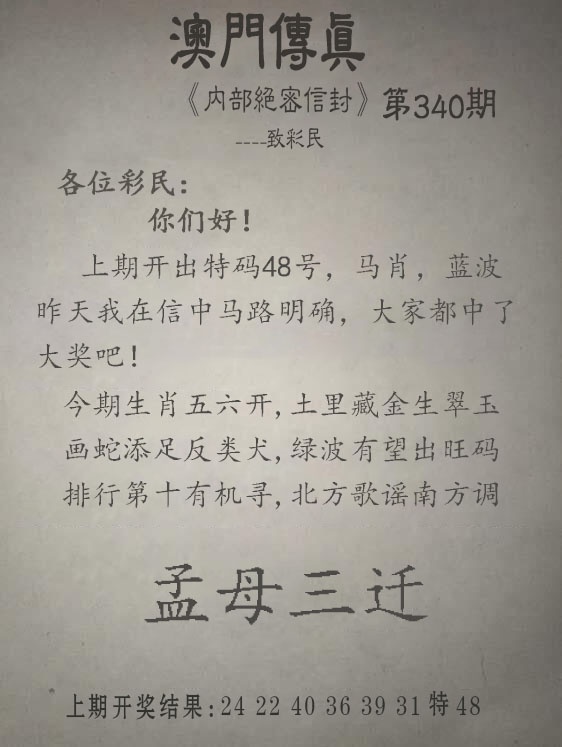 澳門傳真
《内部絕密信封》第340期
----致彩民
各位彩民：
你们好！
上期开出特码48号，马肖，蓝波
昨天我在信中马路明确，大家都中了
大奖吧！
今期生肖五六开,土里藏金生翠玉
画蛇添足反类犬,绿波有望出旺码
排行第十有机寻,北方歌谣南方调
孟母三迁
上期开奖结果:24 22 40 36 39 31 特 48